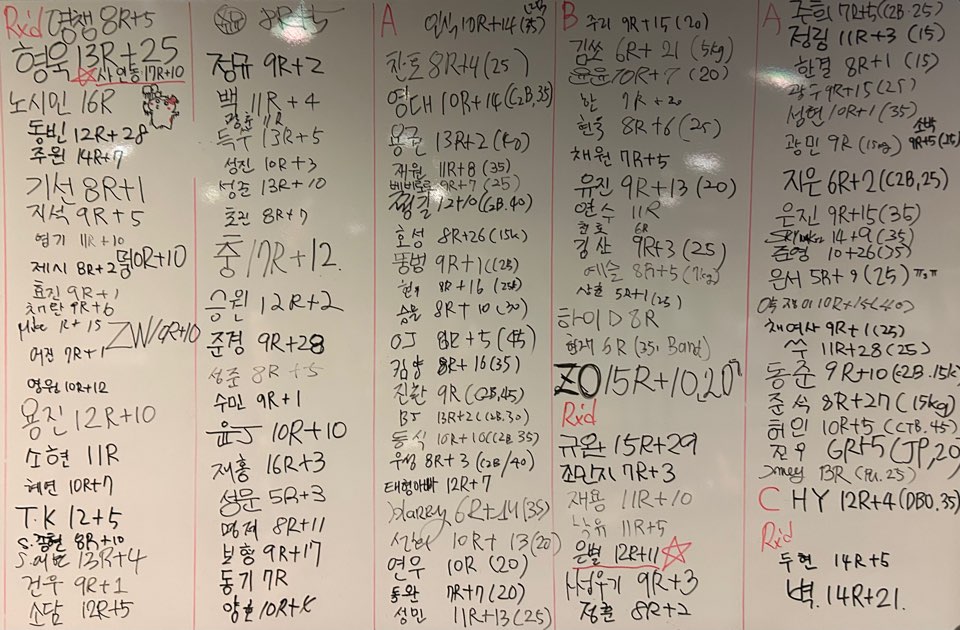 Rx'd 영쟁 8R+5
형욱 13R+25
☆사인홍 17R+10
노시민 16R
동빈 12R+28
주원 14R+7
기선 8R+1
지석 9R+5
영기 11R+10
제시 8R+2 떰10R+10
효진 9R+1
채란 9R+6
Mike R+15
ZW/9R+10
어진 7R+1
영원 10R+12
용진 12R+10
소현 11R
혜연 10R+7
T.K 12+5
S.종현 8R+10
13R+4
건우 9R+1
소담 12R+5
8R+5
정규 9R+2
백 11R+4
11R
득수 13R+5
성진 10R+3
성준 13R+10
효진 8R+7
충 17R+12.
승원 12R+2
준경 9R+28
성준 8R+5
수민 9R+1
윤J 10R+10
재홍 16R+3
성문 5R+3
명제 8R+11
보형 9R+17
동기 7R
양호 10R+
A
인식 10R+14 (35)
찬토 8R+4 (25)
영대 10R+14 (C2B,35)
용근 13R+2 (40)
재원 11R+8 (35)
9R+7 (25)
쩡길 12+10 (C2B.40)
호성 8R+26 (15k)
똥범 9R+1 (25)
현우 8R+16 (25)
승율 8R+10 (30)
OJ 8R+5 (45)
김양 8R+16 (35)
진환 9R (C2B,45)
BJ 13R+2 (C2B.30)
동식 10R+10 (C2B.35)
우성 8R+3 (C2B/40)
태형아빠 12R+7
Harry 6R+14 (35)
10R+13 (20)
연우 10R (20)
동완 7R+7 (20)
성민 11R+13 (25)
B
주리 9R+15 (20)
김쏘 6R+21 (5kg)
윤윤 10R+7 (20)
한 9R+20
현욱 8R+6 (25)
채원 7R+5
유진 9R+13 (20)
연수 11R
6R
김산 9R+3 (25)
예슬 8R+5 (7kg)
상호 5R+1 (25)
하이D 8R
현재 6R (35, Band)
ZO 15R+10,20
Rx'd
규완 15R+29
조민지 7R+3
재용 11R+10
낙유 11R+5
은별 12R+11 ☆
서성우기 9R+3
정훈 8R+2
A
주희 7R+5 (C2B.25)
정링 11R+3 (15)
한결 8R+1 (15)
광수 9R+15 (25)
성현 10R+1 (35)
광민 9R (15kg)
9R+5 (25)
지은 6R+2 (C2B,25)
웅진 9R+15 (35)
14+9 (35)
10+26 (35)
은서 5R+9 (25) ㅠㅠ
10R+15 (40)
채여사 9R+1 (25)
쑤 11R+28 (25)
동준 9R+10 (C2B.15k)
준석 8R+27 (15kg)
허인 10R+5 (CTB.45)
진우 6R+5 (JP,20)
13R (25)
C HY 12R+4 (DBO.35)
Rx'd
두현 14R+5
벽. 14R+21.